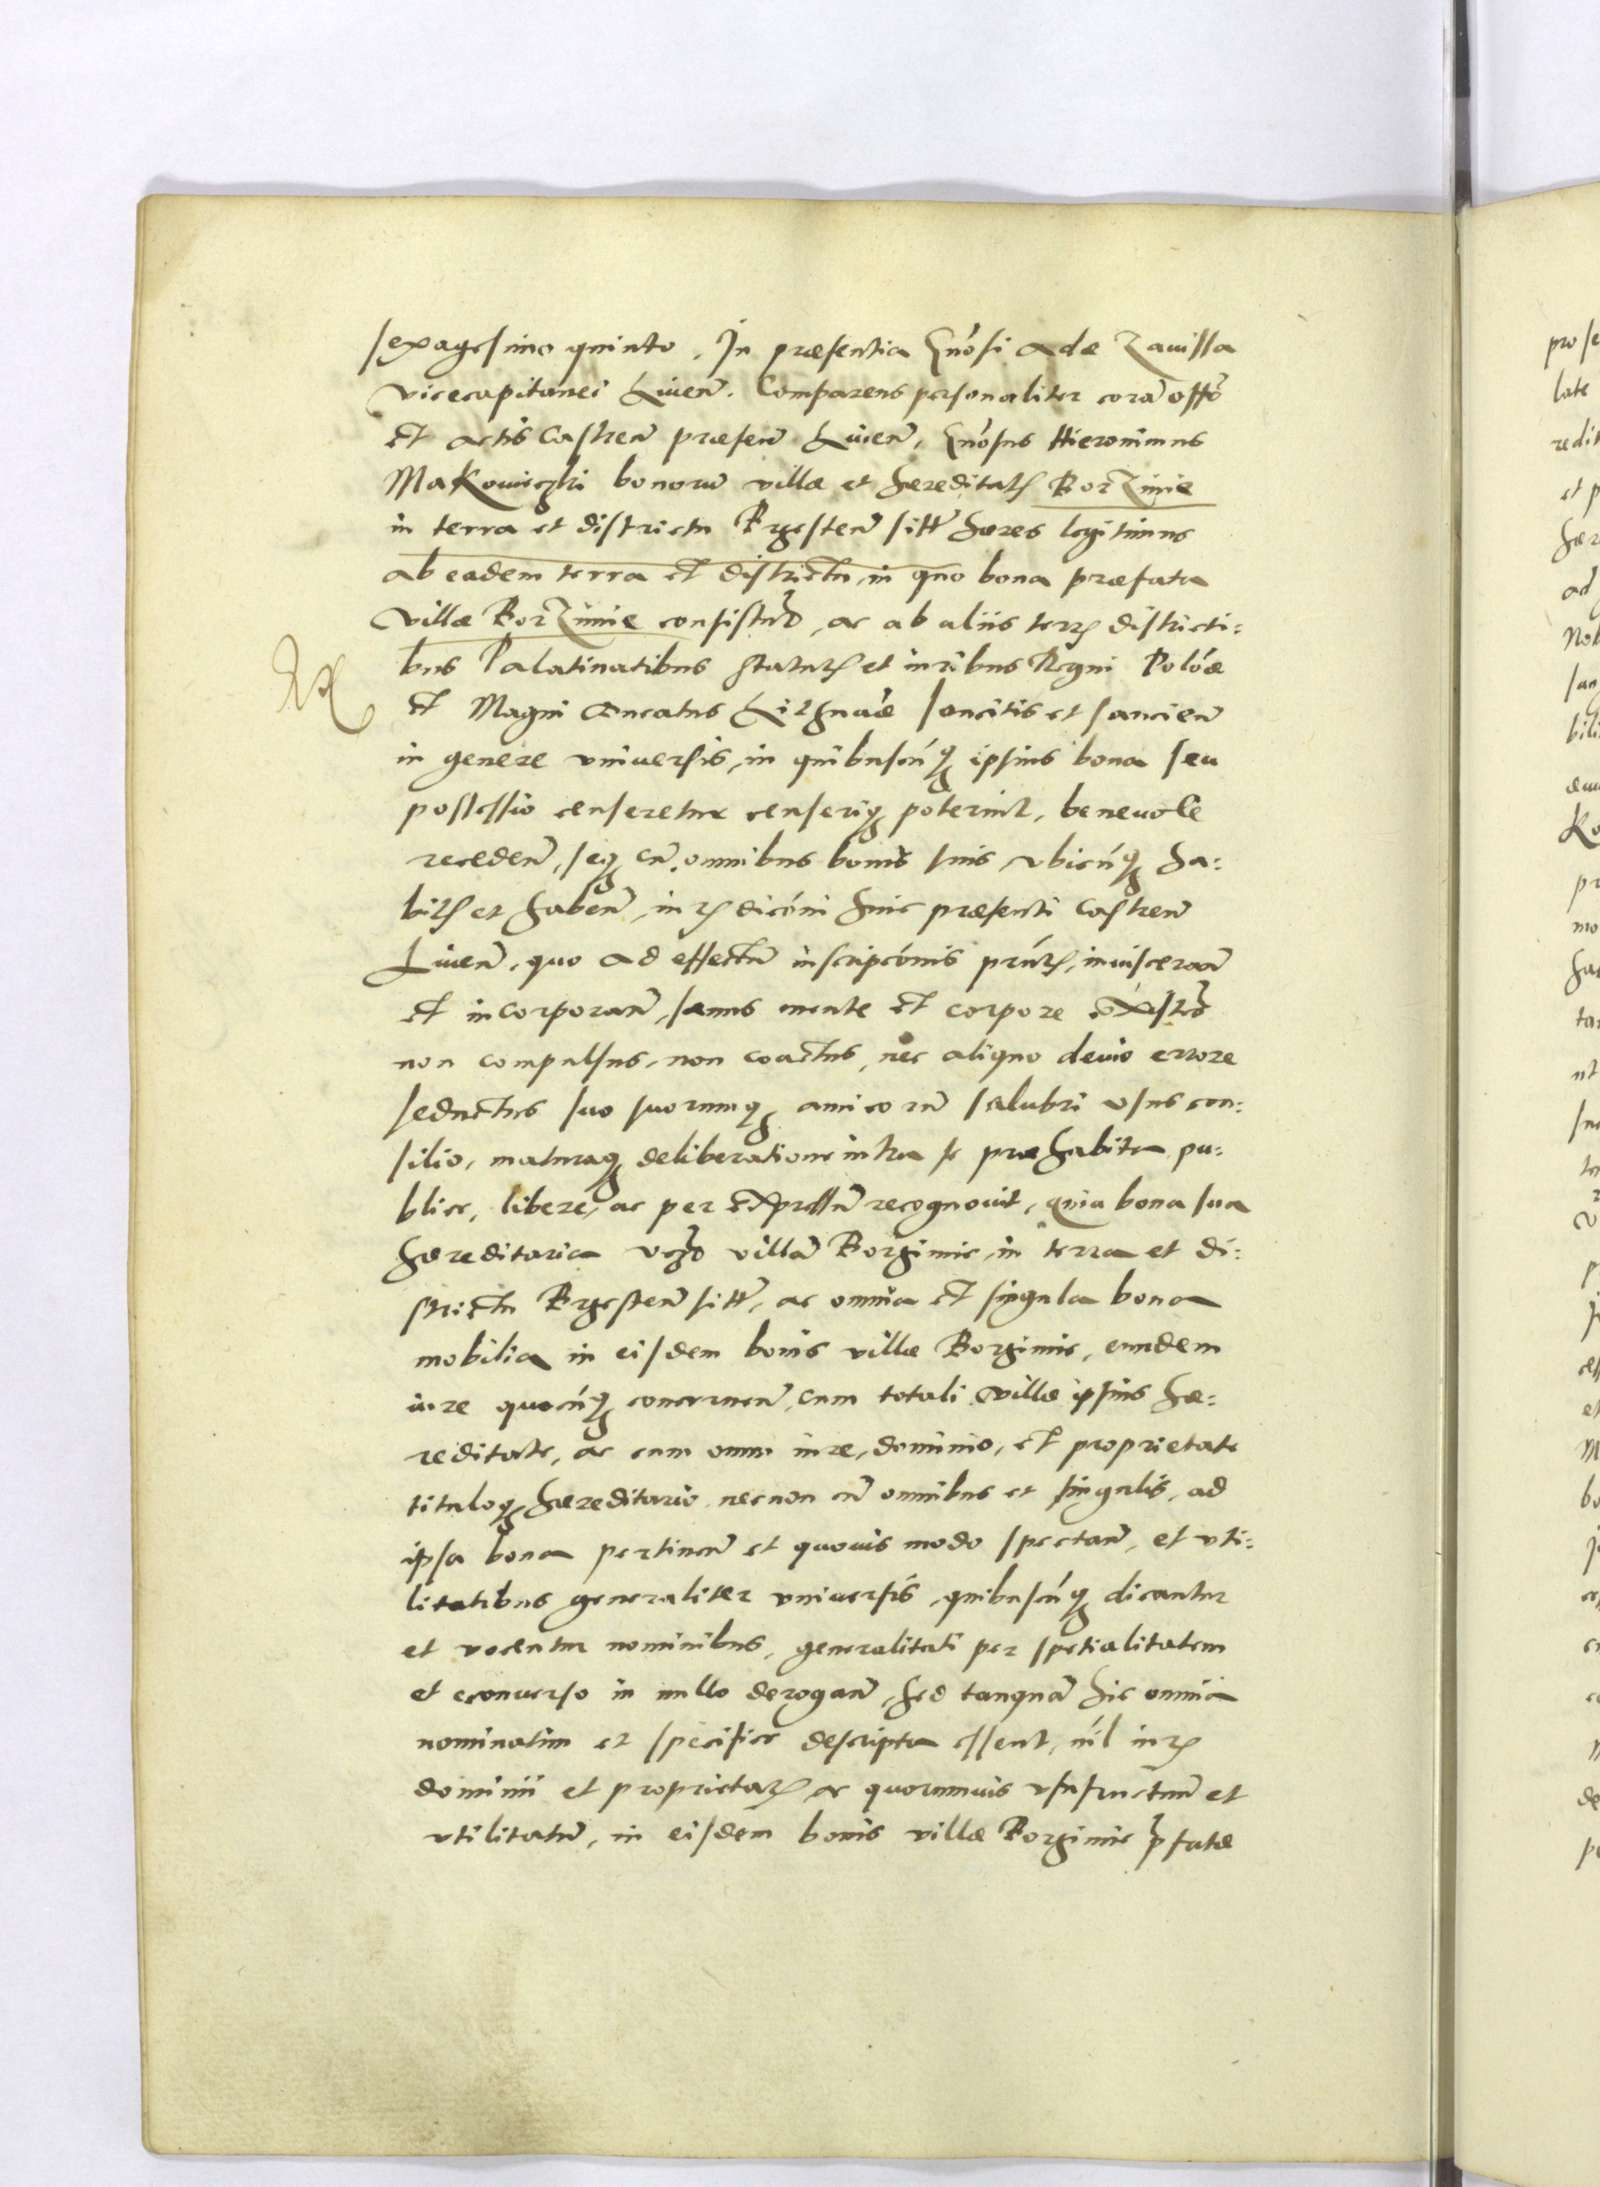 sexagesimo quinto. In præsentia Gnosi Adæ Zauissa
vicecapitanei Liuen. Comparens personaliter cora offo
et actis Castren præsen Liuen, Gnosus Hieronimus
Makowieczki bonorum villæ et hæreditatis Borzimie
in terra et districtu Brzesten sitt hæres legitimus
ab eadem terra et districtu, in quo bona præfata
villæ Borzimie consistunt, ac ab aliis terris districti:
bus Palatinatibus statutis et iuribus Regni Polóæ
et Magni Ducatus Lithuáæ sancitis et sancien
in genere vniuersis, in quibuscúq ipsius bona seu
possessio censeretur censeriq poterint, beneuole
receden, seq cu omnibus bonis suis vbicúq ha:
bitis et haben, iurisdicóni huic præsenti Castren
Liuen, quo ad effectu inscripcónis prútis, inuisceran
et incorporan, sanus mente et corpore existen
non compulsus, non coactus, nec aliquo deuio errore
seductus suo suorumq amicoru salubri vsus con:
silio, maturaq deliberatione intra se præhabita, pu:
blice, libere, ac per expressu recognouit, quia bona sua
hæreditaria vczt villa Borzimie, in terra et di:
strictu Brzesten sitt, ac omnia et singula bona
mobilia in eisdem bonis villæ Borzimie, eundem
iure quocúq concernen, cum totali villæ ipsius hæ:
reditate, ac cum omni iure, dominio, et proprietate
tituloq hæreditario necnon cu omnibus et singulis, ad
ipsa bona pertinen et quouis modo spectan, et vti:
litatibus generaliter vniuersis, quibuscúq dicantur
et vocentur nominibus, generalitati per spetialitatem
et econuerso in nullo derogan, sed tanqua hic omnia
nominatim et specifice descripta essent, níl iuris
dominii et proprietatis ac quorumuis vsufructuu et
vtilitatu, in eisdem bonis villæ Borzimie pfatæ